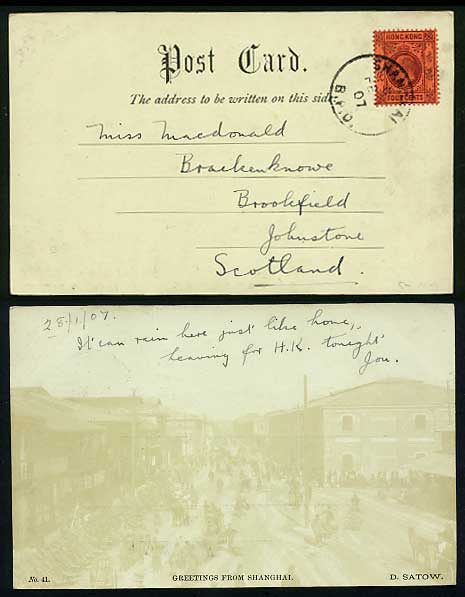 Post Card.
The address to be written on this side.
HONG KONG
FOUR CENTS
SHANGHAI
07
B.P.O.
Miss Macdonald
Brackenknowe
Brookfield
Johnstone
Scotland.
28/1/07.
It can rain here just like home,
leaving for H.K. tonight
Jou.
No. 41.
GREETINGS FROM SHANGHAI.
D. SATOW.